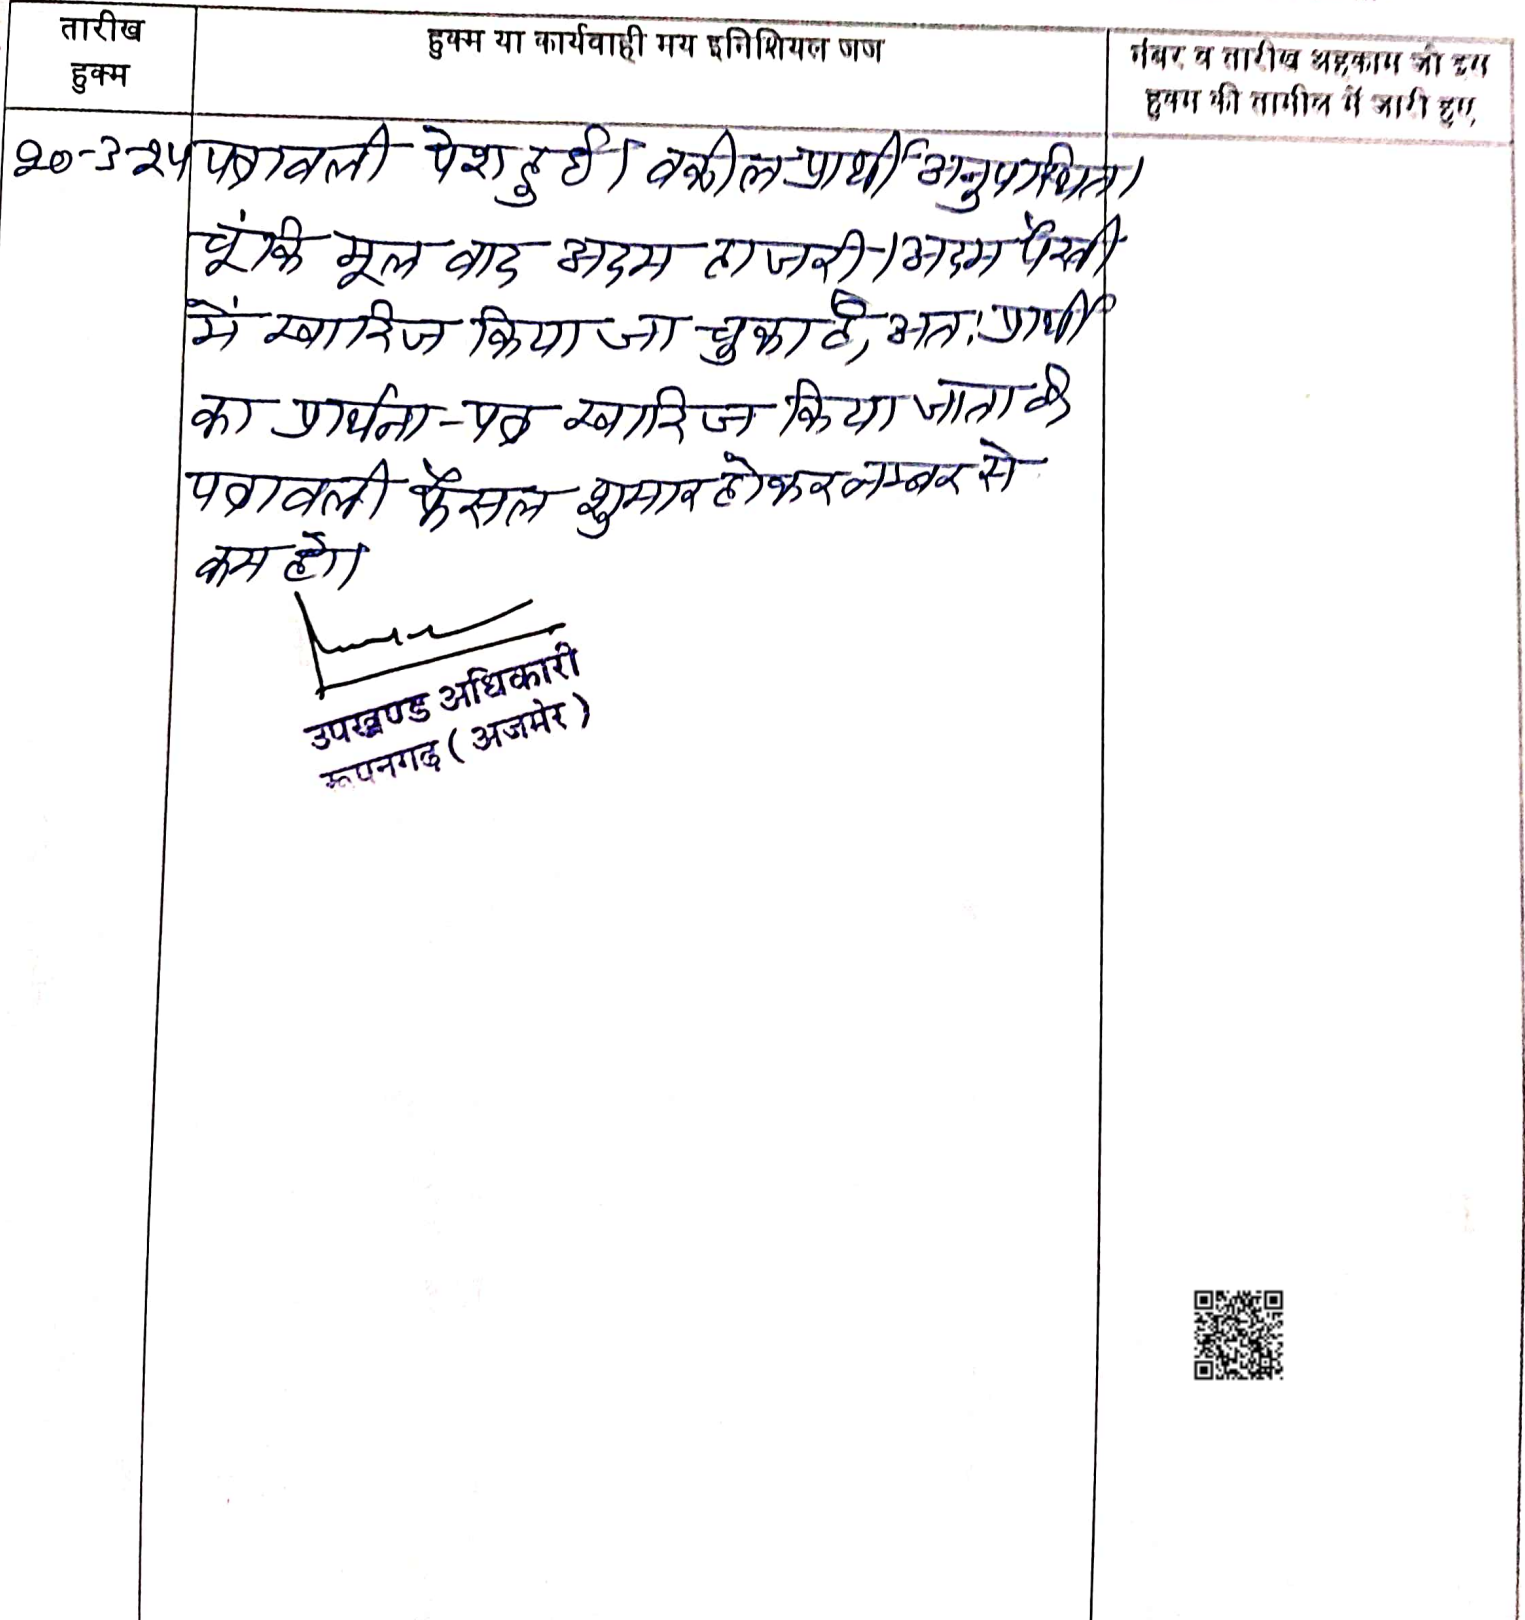 तारीख
हुक्म
हुक्म या कार्यवाही मय इनिशियल जज
नंबर व तारीख अहकाम जो इस
हुक्म की तामील में जारी हुए
20-3-25 पत्रावली पेश हुई। वकील प्रार्थी अनुपस्थित।
चूंकि मूल वाद अदम हाजरी/अदम पैरवी
में खारिज किया जा चुका है, अतः प्रार्थी
का प्रार्थना-पत्र खारिज किया जाता है
पत्रावली फैसल शुमार होकर नम्बर से
कम हो।
उपखण्ड अधिकारी
रूपनगढ़ (अजमेर)